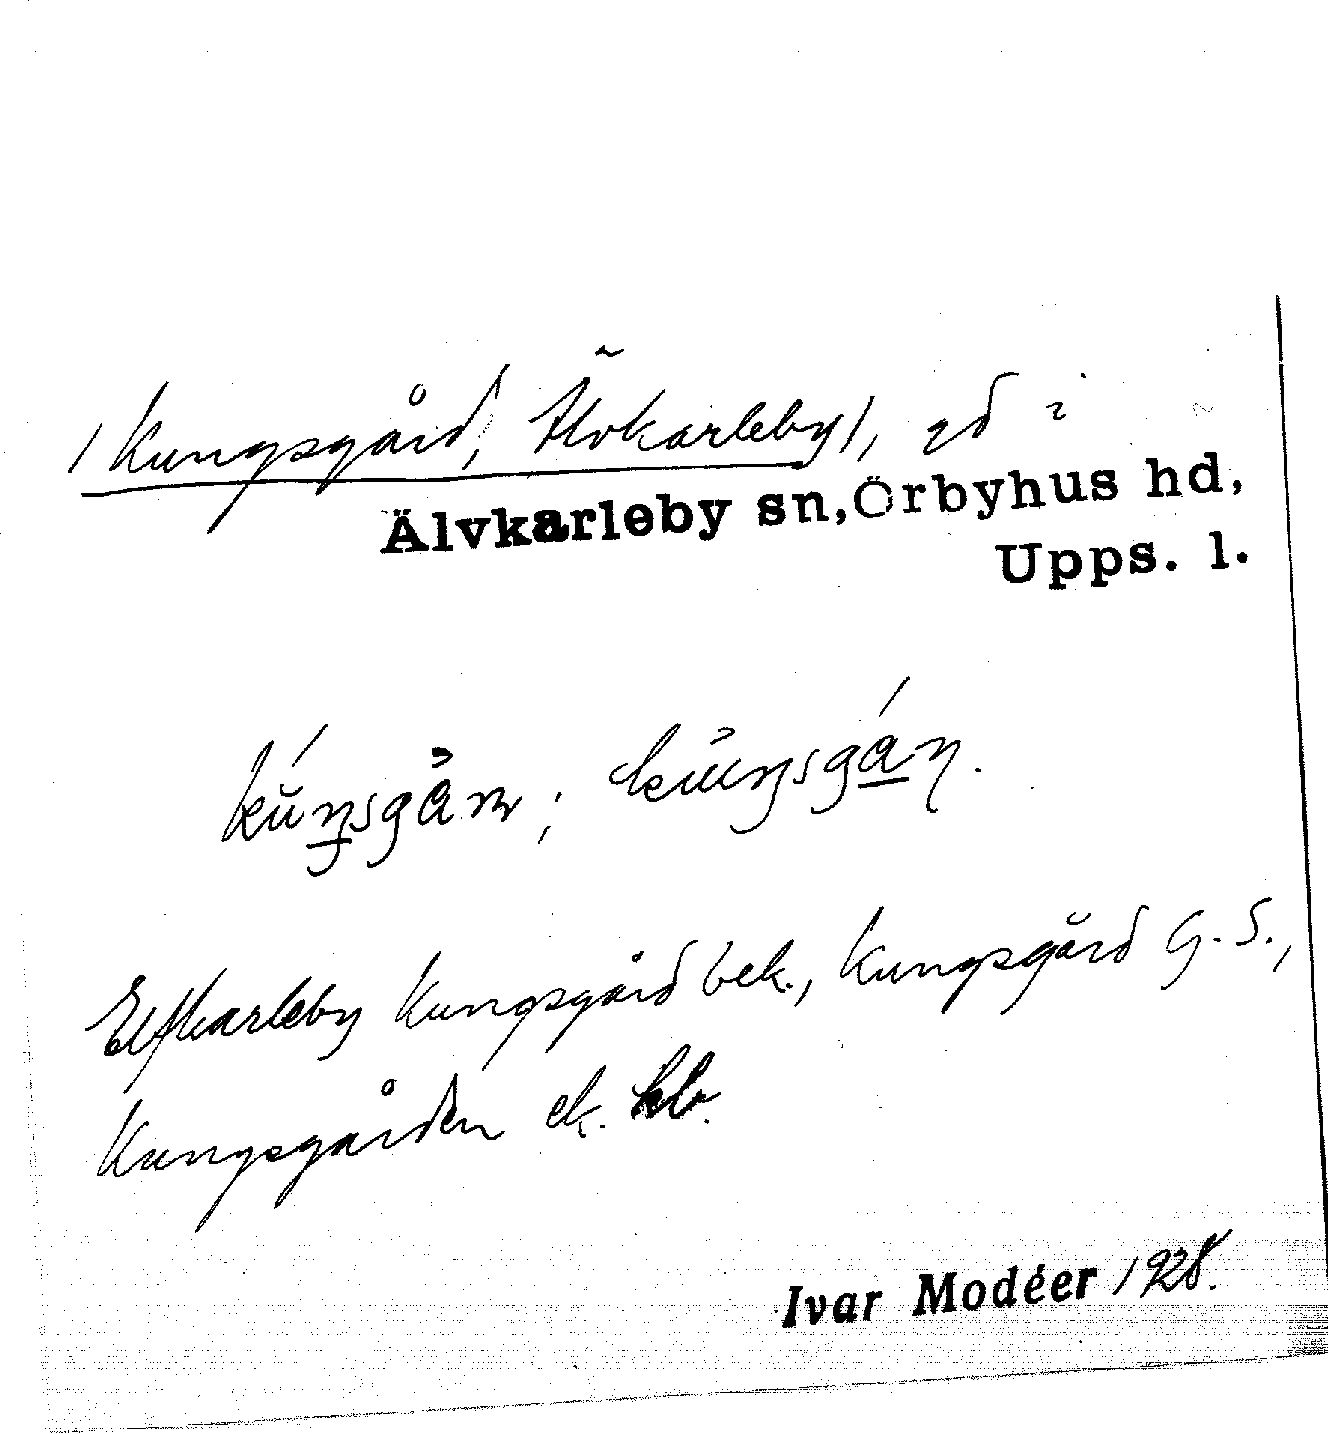 /Kungsgård, Älvkarleby/, gd i
Älvkarleby sn, Örbyhus hd,
Upps. l.
Elfkarleby Kungsgård bek., Kungsgård G.S.,
Kungsgården ek. kb.
Ivar Modéer 1928.